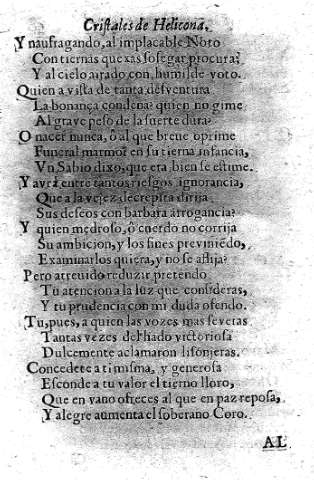 Cristales de Helicona.
Y naufragando, al implacable Noto
Con tiernas quexas sosegar procura?
Y al cielo airado con humilde voto.
Quien a vista de tanta desventura
La bonança condena? quien no gime
Al grave peso de la suerte dura?
O nacer nunca, ô al que breve oprime
Funeral marmor en su tierna infancia,
Vn Sabio dixo, que era bien se estime.
Y avrà entre tantos riesgos ignorancia,
Que a la vejez decrepita dirija
Sus deseos con barbara arrogancia?
Y quien medroso, ô cuerdo no corrija
Su ambicion, y los fines previniẽdo,
Examinarlos quiera, y no se aflija?
Pero atrevido reduzir pretendo
Tu atencion a la luz que consideras,
Y tu prudencia con mi duda ofendo.
Tu, pues, a quien las vozes mas severas
Tantas vezes del hado victoriosa
Dulcemente aclamaron lisonjeras.
Concedete a ti misma, y generosa
Esconde a tu valor el tierno lloro,
Que en vano ofreces al que en paz reposa,
Y alegre aumenta el soberano Coro.
AL